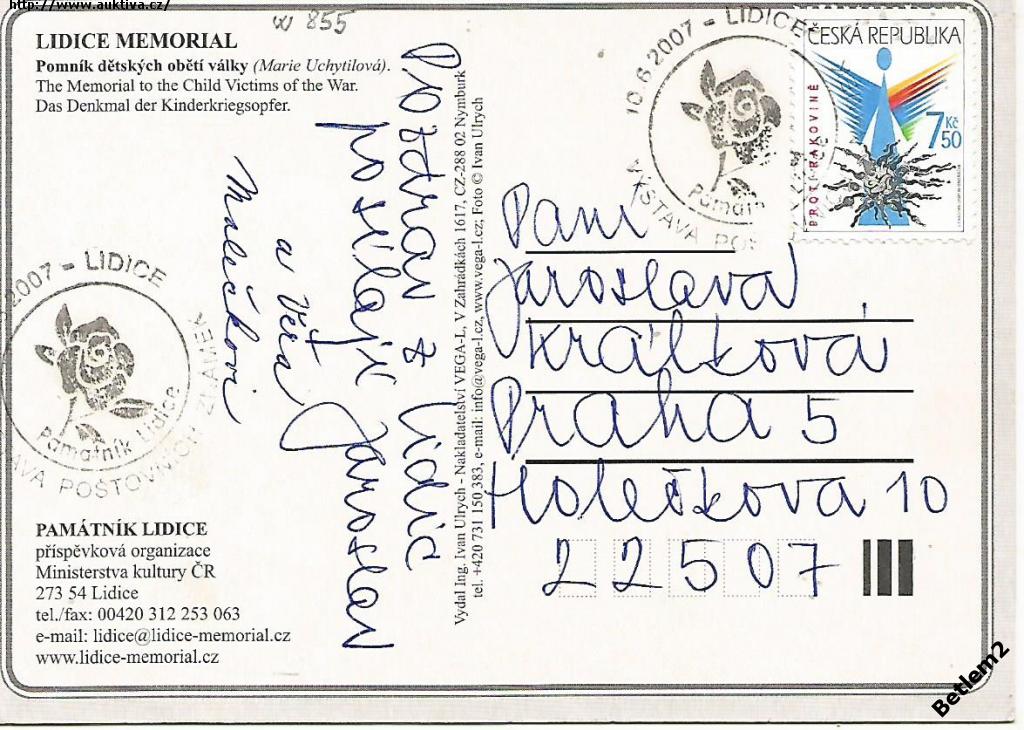 http://www.auktiva.cz/
w 855
LIDICE MEMORIAL
Pomník dětských obětí války (Marie Uchytilová).
The Memorial to the Child Victims of the War.
Das Denkmal der Kinderkriegsopfer.
Pozdrav z Lidic
posílají Jaroslav
a Věra
Malečkovi
2007 - LIDICE
Památník Lidice
VÝSTAVA POŠTOVNÍCH ZNÁMEK
PAMÁTNÍK LIDICE
příspěvková organizace
Ministerstva kultury ČR
273 54 Lidice
tel./fax: 00420 312 253 063
e-mail: lidice@lidice-memorial.cz
www.lidice-memorial.cz
Vydal Ing. Ivan Ulrych - Nakladatelství VEGA-L, V Zahrádkách 1617, CZ-288 02 Nymburk
tel. +420 731 150 383, e-mail: info@vega-l.cz, www.vega-l.cz; Foto © Ivan Ulrych
10.6.2007 - LIDICE
Památ
VÝSTAVA POŠ
ČESKÁ REPUBLIKA
PROTI RAKOVINĚ
7 50 Kč
Paní
Jaroslava
Králková
Praha 5
Holečkova 10
22507
Betlem2